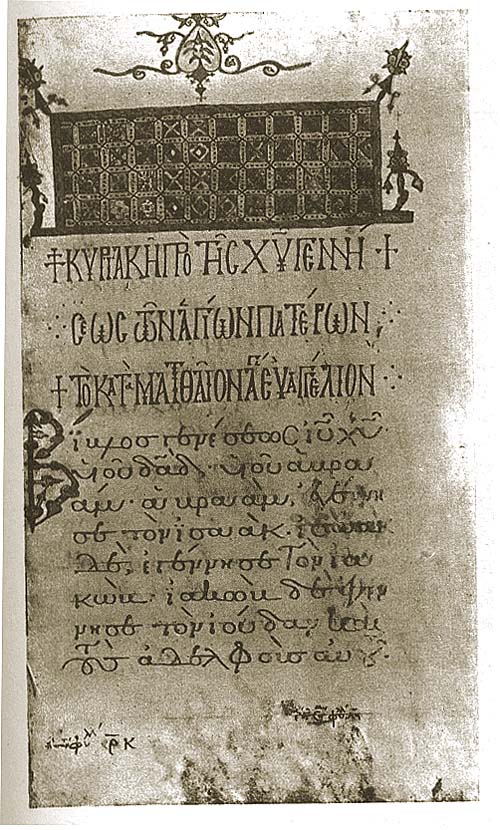 +ΚΥΡΙΑΚῊ ΠΡῸ ΤΗ͂C Χ̅Υ̅ ΓΕΝΝΉ +
CΕΩC ΤΩ͂Ν ἉΓΊΩΝ ΠΑΤΈΡΩΝ
+ ΤῸ ΚΑΤ ΜΑΤΘΑΙ͂ΟΝ ΕΥΑΓΓΈΛΙΟΝ
Βίβλος γενέσεως ἰ̅υ̅ χ̅υ̅
υἱοῦ δα̅δ̅· υἱοῦ ἀβρα
άμ· ἀβραὰμ, ἐγένη
σε τὸν ἰσαάκ· ἰσαὰκ
δὲ, ἐγέννησε τὸν ἰα
κώβ· ἰακὼβ δὲ ἐγέν
νησε τὸν ἰούδαν, καὶ
τοὺς ἀδελφοὺς αὐτοῦ·
ρ̅κ̅